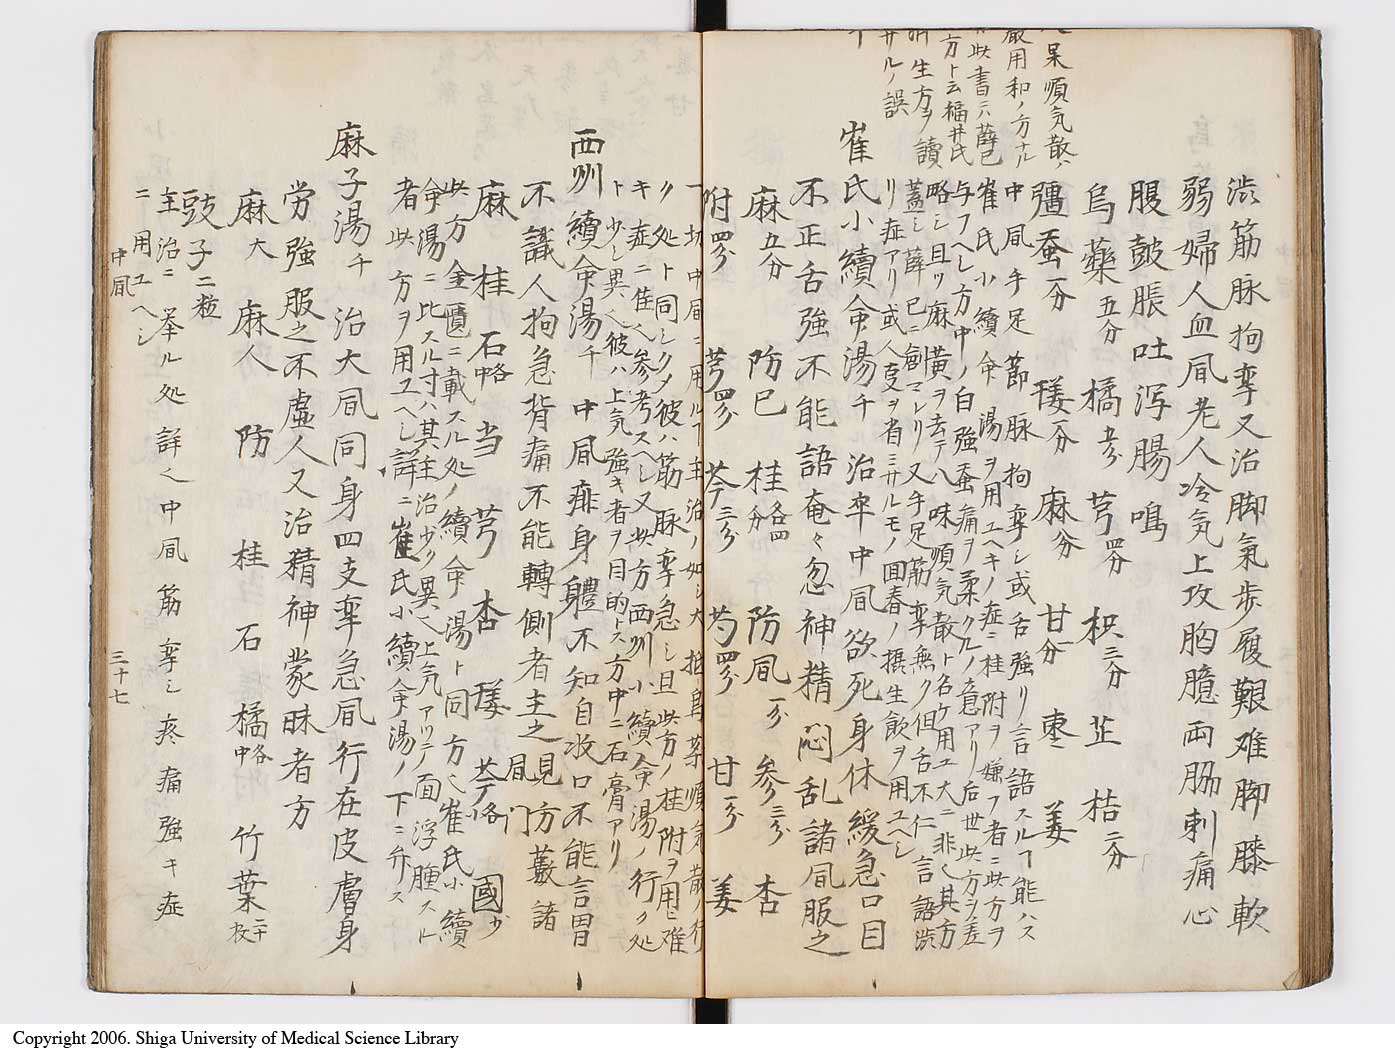 呆順気散ハ
嚴用和ノ方ナル
此書ニハ薛己
方ト云福井氏
生方ヲ讀
サルノ誤
渋筋脉拘挛又治脚氣歩履艱难脚膝軟
弱婦人血凮老人冷気上攻胸臆両脇刺痛心
腹皷脹吐泻腸鳴
烏藥五分 橘五分 芎四分 枳三分 芷 桔二分
彊蚕一分 䕪二分 麻分 甘一分 枣 姜
中凮手足莭脉拘挛シ或舌強リ言語スルヿ能ハス
崔氏小續命湯ヲ用ユヘキノ症ニ桂附ヲ嫌フ者ニ此方ヲ
与フヘシ方中ノ白強蚕痛ヲ柔クルノ意アリ后世此方ヲ差
略シ且ツ麻黄ヲ去テ八味順気散ト名ケ用ユ大ニ非也其方
蓋シ薛己ニ創マレリ又手足筋挛無ク但舌不仁言語渋
リ症アリ或人支ヲ省ミサルモノ回春ノ摂生飲ヲ用ユヘシ
崔氏小續命湯千 治卒中凮欲死身体緩急口目
不正舌強不能語奄々忽神精悶乱諸凮服之
麻五分 防已 桂各四分 防凮一分 参三分 杏
附四分 芎四分 芩三分 芍四分 甘一分 姜
一切中凮ニ用ルヿ主治ノ如シ大抵烏薬順気散ノ行
ク処ト同シクメ彼ハ筋脉挛急シ且此方ノ桂附ヲ用ニ难
キ症ニ佳也参考スヘシ又此方西州小續命湯ノ行ク処
ト少シ異也彼ハ上気強キ者ヲ目的トス方中ニ石膏アリ
西州續命湯千 中凮痱身體不知自收口不能言冒
不識人拘急背痛不能轉側者主之見方藪諸凮門
麻 桂 石略中 当 芎 杏 䕪 芩各 國少
此方金匱ニ載スル処ノ續命湯ト同方也崔氏小續
命湯ニ比スル寸ハ其主治少ク異也上気アツテ面浮腫スル
者此方ヲ用ユヘシ詳ニ崔氏小續命湯ノ下ニ弁ス
麻子湯千 治大凮同身四支挛急凮行在皮膚身
労強服之不虚人又治精神蒙昧者方
麻大 麻人 防 桂 石 橘各中 竹葉二十枚
豉子二粒
主治ニ挙ル処詳也中凮筋挛シ疼痛強キ症
ニ用ユヘシ
中凮
三十七
Copyright 2006. Shiga University of Medical Science Library